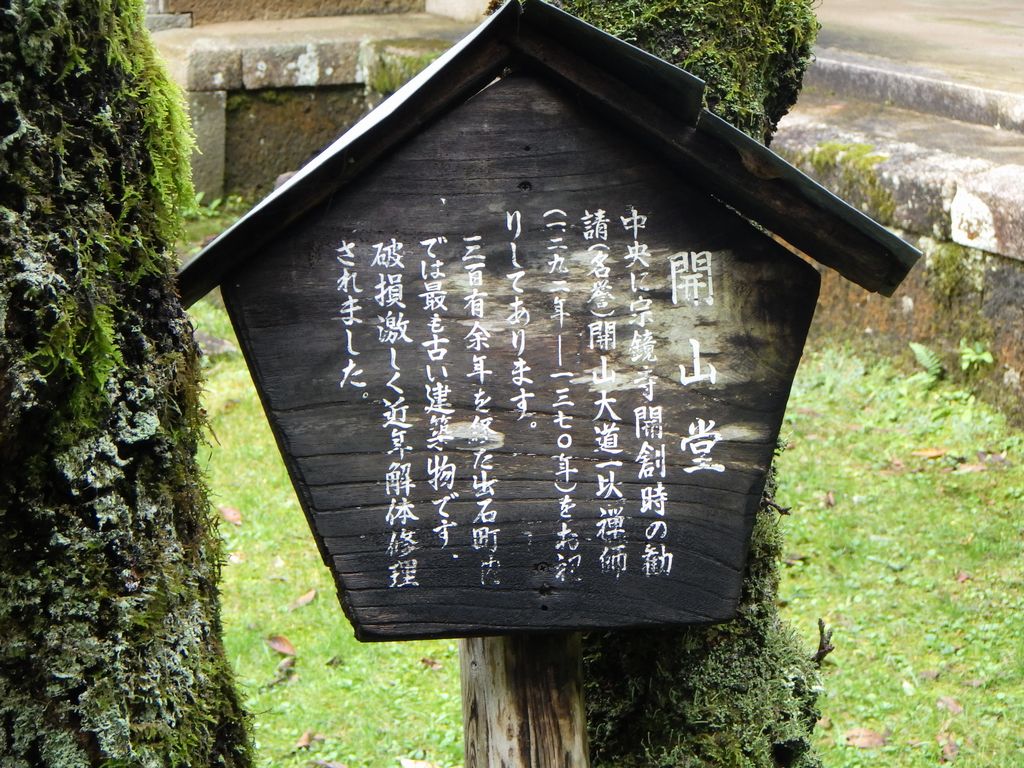 開山堂
中央に宗鏡寺開創時の勧
請(名誉)開山大道一以禅師
(一二九二年—一三七〇年)をお祀
りしてあります。
三百有余年を経た出石町内
では最も古い建築物です.
破損激しく近年解体修理
されました。